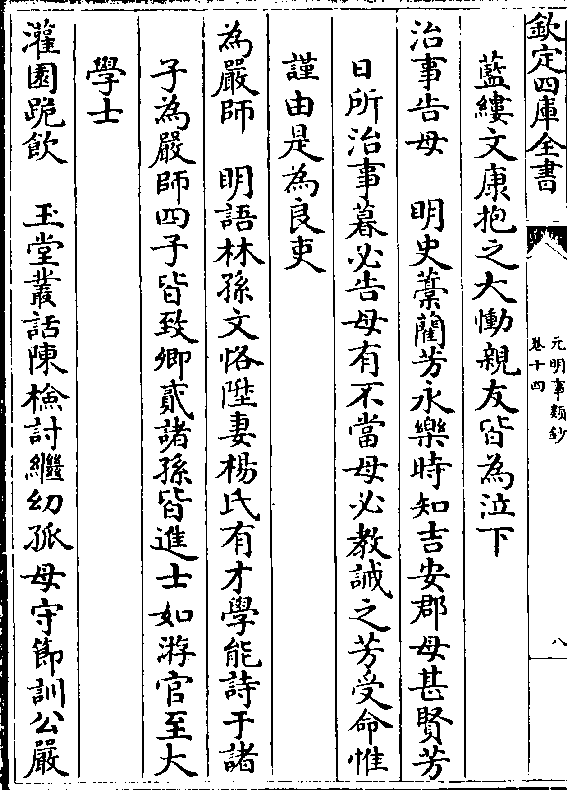 欽定四庫全書
元明事類鈔
卷十四
八
藍縷文康抱之大慟親友皆為泣下
治事告母　明史藁藺芳永樂時知吉安郡母甚賢芳
日所治事暮必告母有不當母必教誡之芳受命惟
謹由是為良吏
為嚴師　明語林孫文恪陞妻楊氏有才學能詩于諸
子為嚴師四子皆致卿貳諸孫皆進士如游官至大
學士
灌園跪飲　玉堂叢話陳檢討繼幼孤母守節訓公嚴